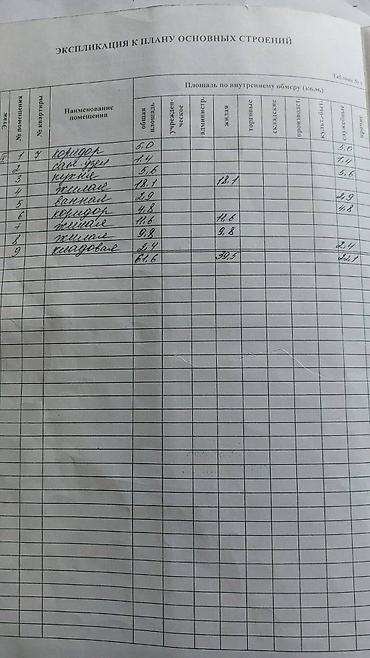 ЭКСПЛИКАЦИЯ К ПЛАНУ ОСНОВНЫХ СТРОЕНИЙ
Таблица №
Этаж № помещения № квартиры Наименование помещения Площадь по внутреннему обмеру (кв.м.)
общая площадь учрежден-ческое администр. жилая торговые складские производст. культ.-быт. служебные прочие
II 1 7 коридор 5,0 5.0
2 сан. узел 1.4 1.4
3 кухня 5,6 5,6
4 жилая 18.1 18.1
5 ванная 2,9 2,9
6 коридор 4,8 4,8
7 жилая 11,6 11,6
8 жилая 9,8 9,8
9 кладовая 2,4 2.4
61,6 39,5 22,1